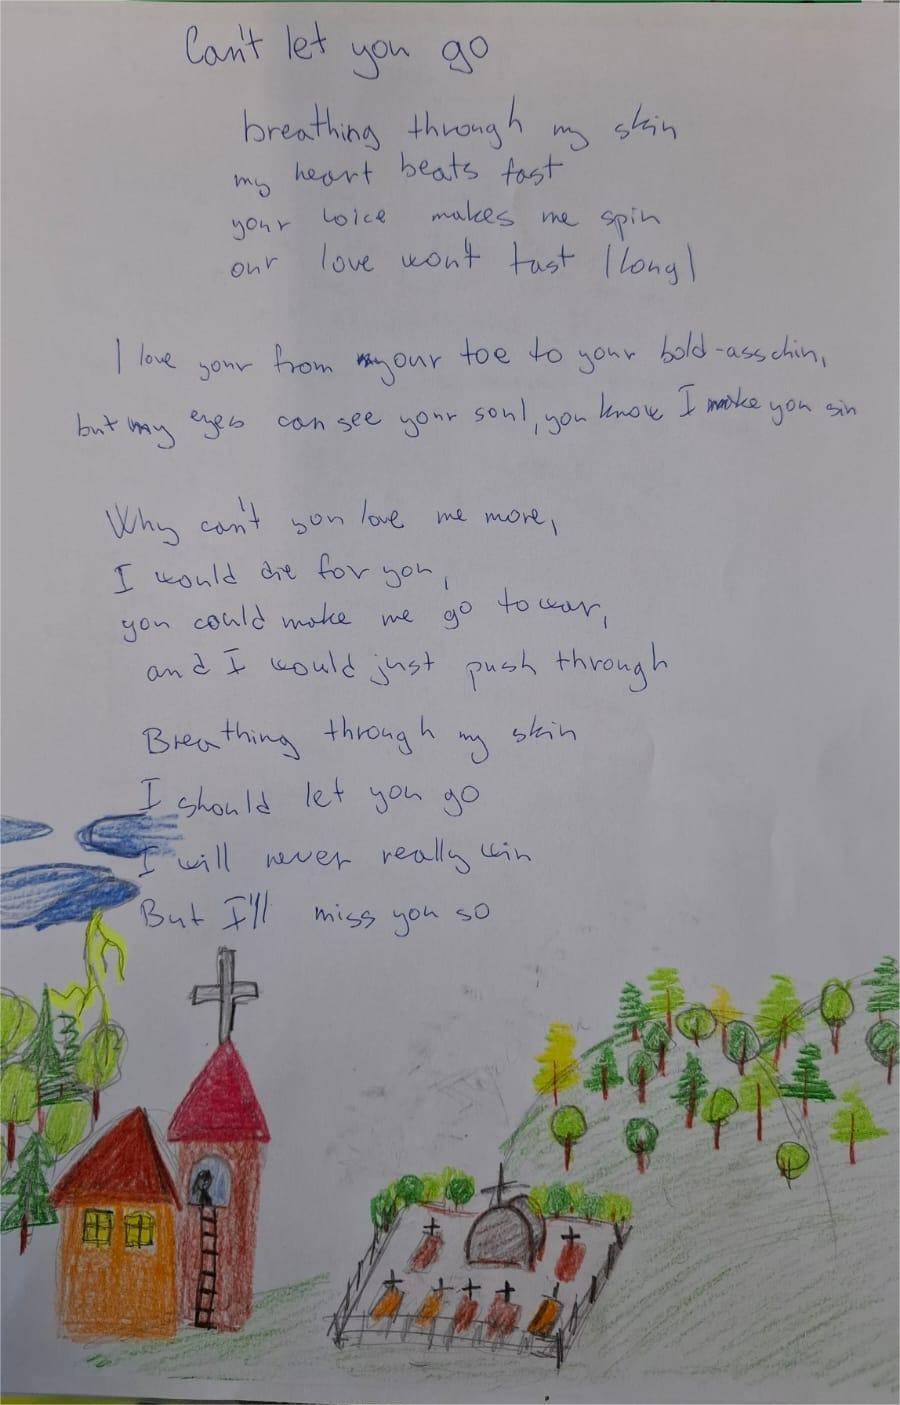 Can't let you go
breathing through my skin
my heart beats fast
your voice makes me spin
our love won't last (long)
I love your from your toe to your bold-ass chin,
but my eyes can see your soul, you know I make you sin
Why can't you love me more,
I would die for you,
you could make me go to war,
and I would just push through
Breathing through my skin
I should let you go
I will never really win
But I'll miss you so